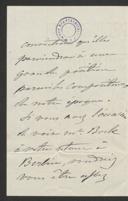 conviction qu'elle
parviendra à une
grande position
parmi les compositeurs
de notre époque.
Si vous avez l'occasion
de voir Mr Bock
à votre retour à
Berlin, voudriez
vous être assez